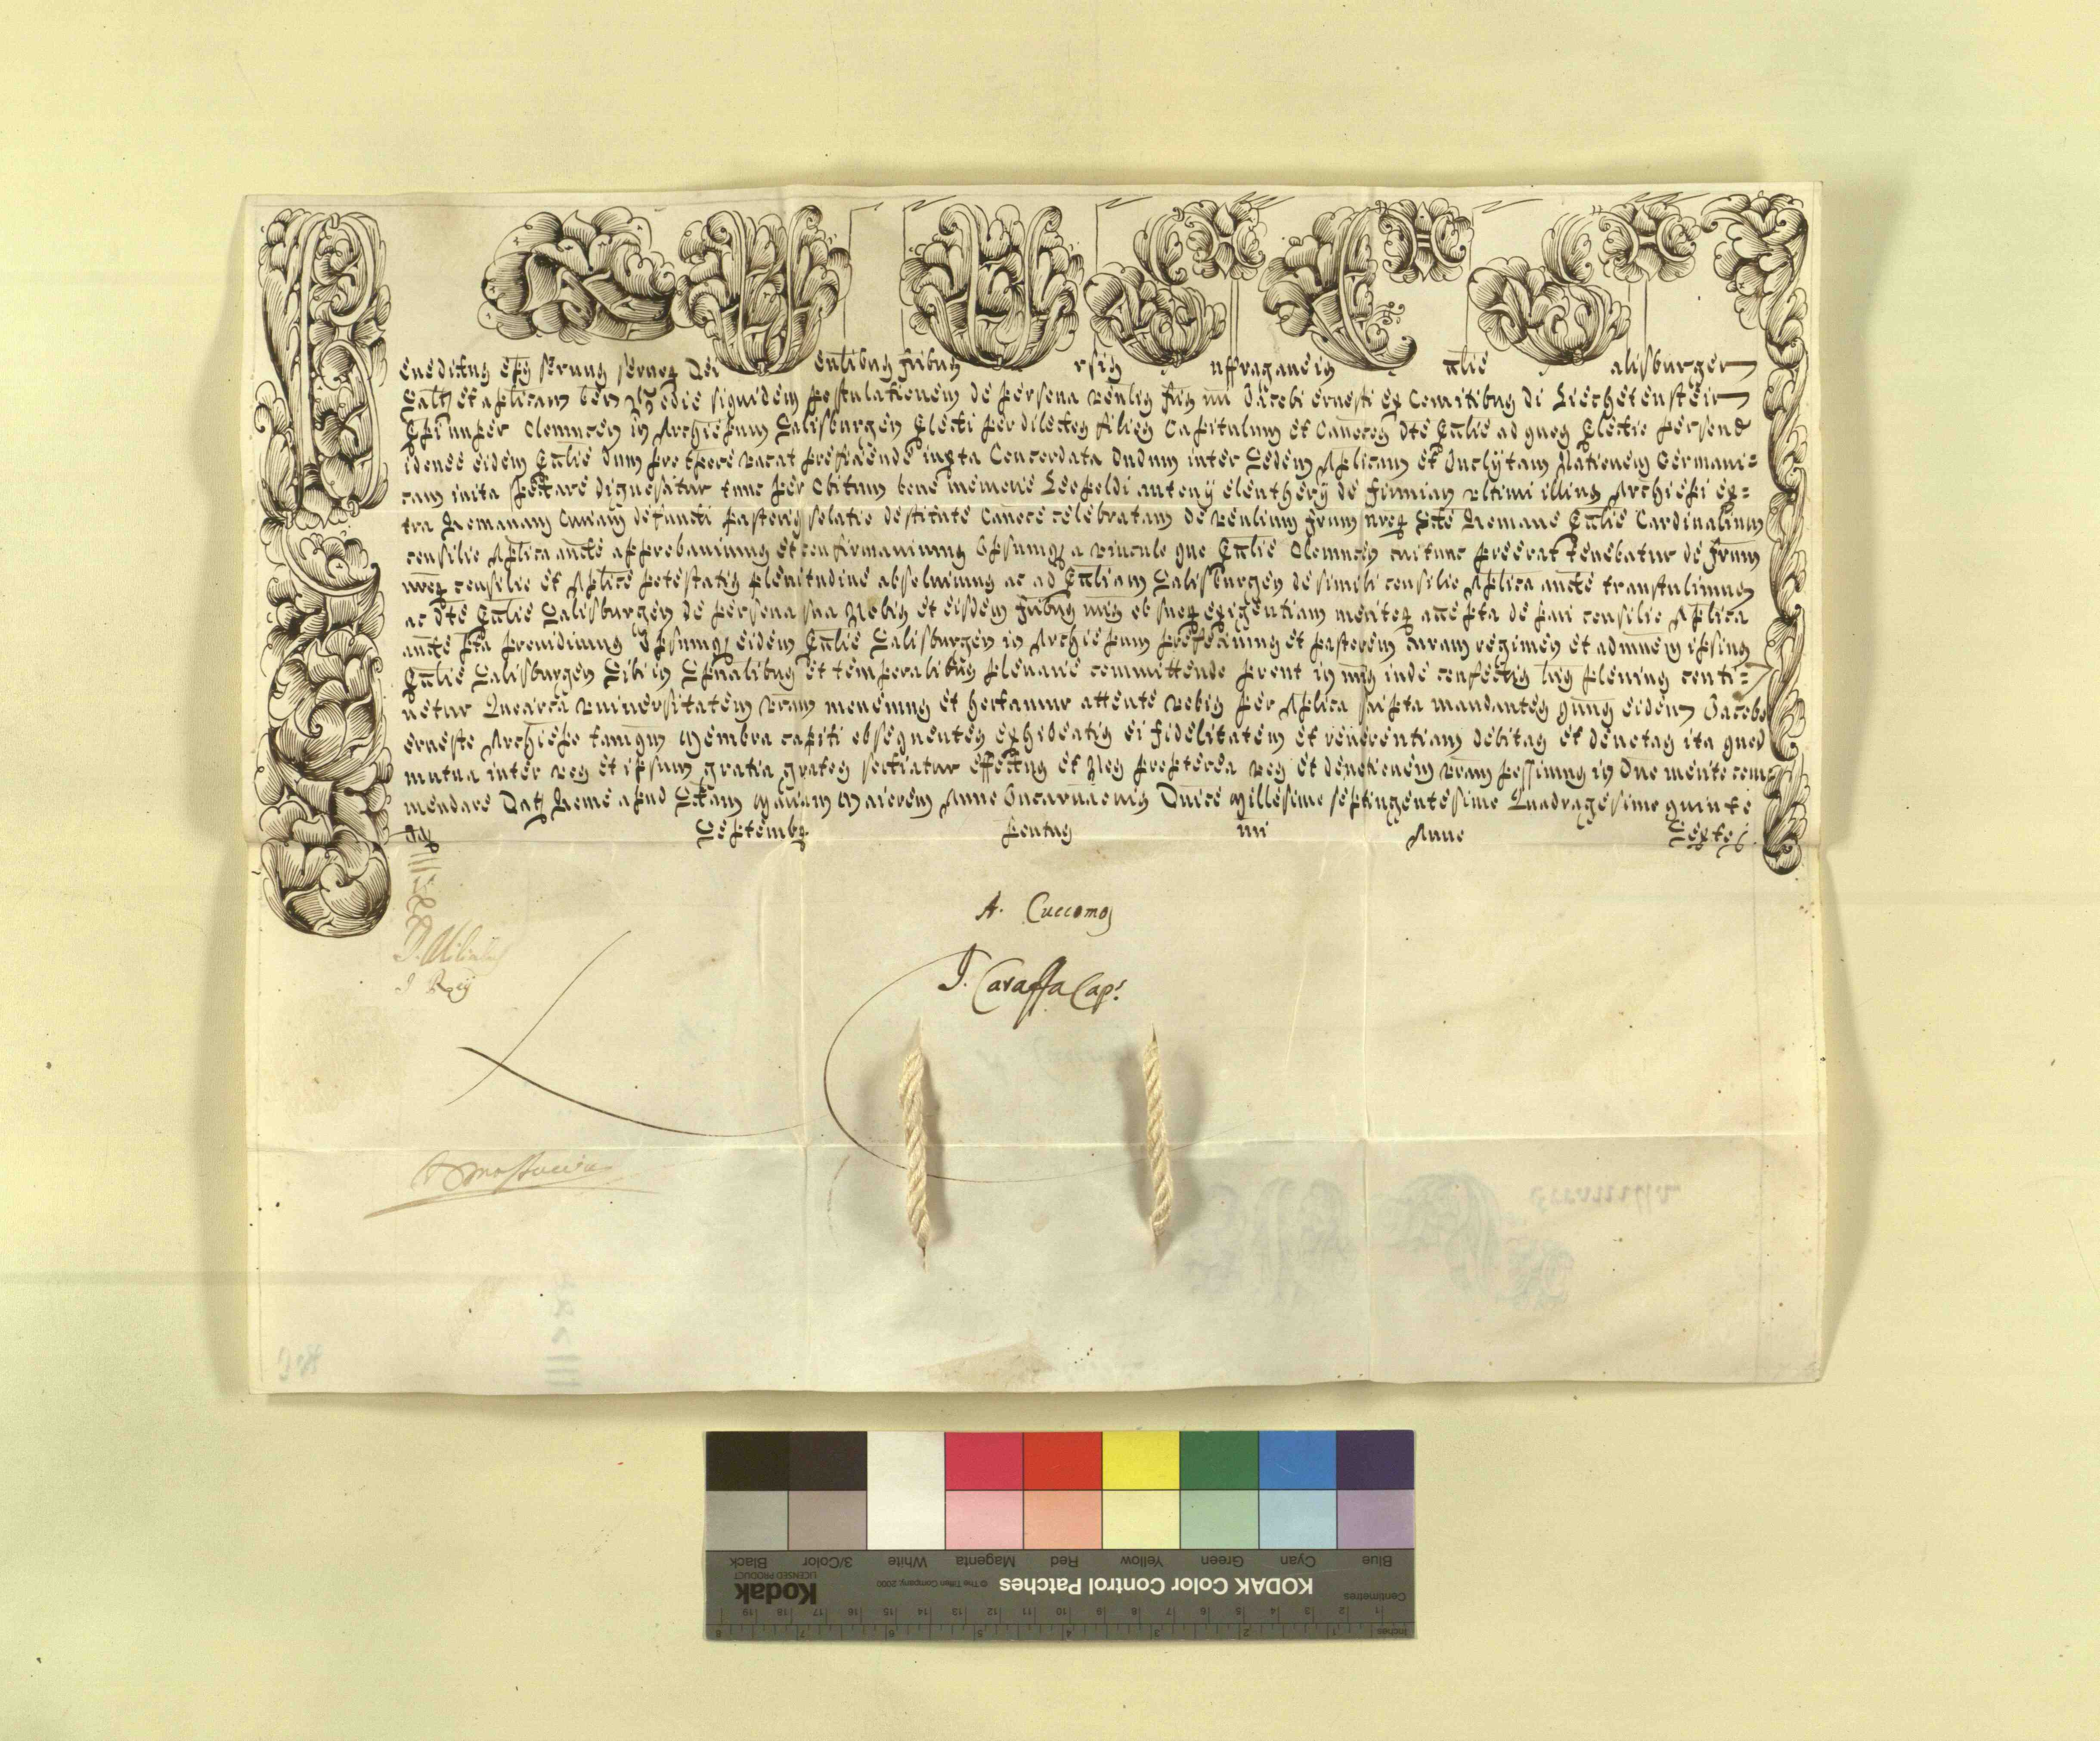 Benedictus eps servus servor Dei Venlibus fribus Vniversis Suffraganeis Ecclie Salisburgen
Saltm et aplicam ben Hodie siquidem postulationem de persona venlis fris nri Jacobi ernesti ex Comitibus di Liechetenstein
Epi nuper Olomucen in Archiepum Salisburgen Electi per dilectos filios Capitulum et Canocos dte Ecclie ad quos Electio persone
idonee eidem Ecclie dum pro tpore vacat preficiende iuxta Concordata dudum inter Sedem Aplicam et Inclytam Nationem Germani=
cam inita spectare dignoscitur tunc per obitum bone memorie Leopoldi antonij eleutherij de firmian ultimi illius Archiepi ex=
tra Romanam Curiam defuncti pastoris solatio destitute canoce celebratam de venlium frum nror Scte Romane Ecclie Cardinalium
consilio Aplica aucte approbavimus et confirmavimus Ipsumq a vinculo quo Ecclie Olomucen cui tunc preerat tenebatur de frum
nror consilio et Aplice potestatis plenitudine absolvimus ac ad Eccliam Salisburgen de simili consilio Aplica aucte transtulimus
ac dte Ecclie Salisburgen de persona sua Nobis et eisdem fribus nris ob suor exigentiam meritor accepta de pari consilio Aplica
aucte pta providimus Ipsumq eidem Ecclie Salisburgen in Archiepum prefecimus et pastorem curam regimen et admnem ipsius
Ecclie Salisburgen Sibi in Spualibus et temporalibus plenarie committendo prout in nris inde confectis lris plenius conti=
netur Quocirca universitatem vram monemus et hortamur attente vobis per Aplica scripta mandantes quus eidem Jacobo
ernesto Archiepo tamqm Membra capiti obsequentes exhibeatis ei fidelitatem et reverentiam debitas et devotas ita quod
mutua inter vos et ipsum gratia gratos sortiatur effectus et Nos propterea vos et devotionem vram possimus in Dno merito com=
mendare Dat Rome apud Sctam Mariam Maiorem Anno Incarnaonis Dnice Millesimo septingentesimo Quadragesimo quinto
Id Septembr Pontus nri Anno Sexto
A. Cuccomos
J. Caraffa Cap.
KODAK Color Control Patches
© The Tiffen Company, 2000
Kodak
LICENSED PRODUCT
Blue Cyan Green Yellow Red Magenta White 3/Color Black
Centimetres
1 2 3 4 5 6 7 8 9 10 11 12 13 14 15 16 17 18 19
Inches 1 2 3 4 5 6 7 8